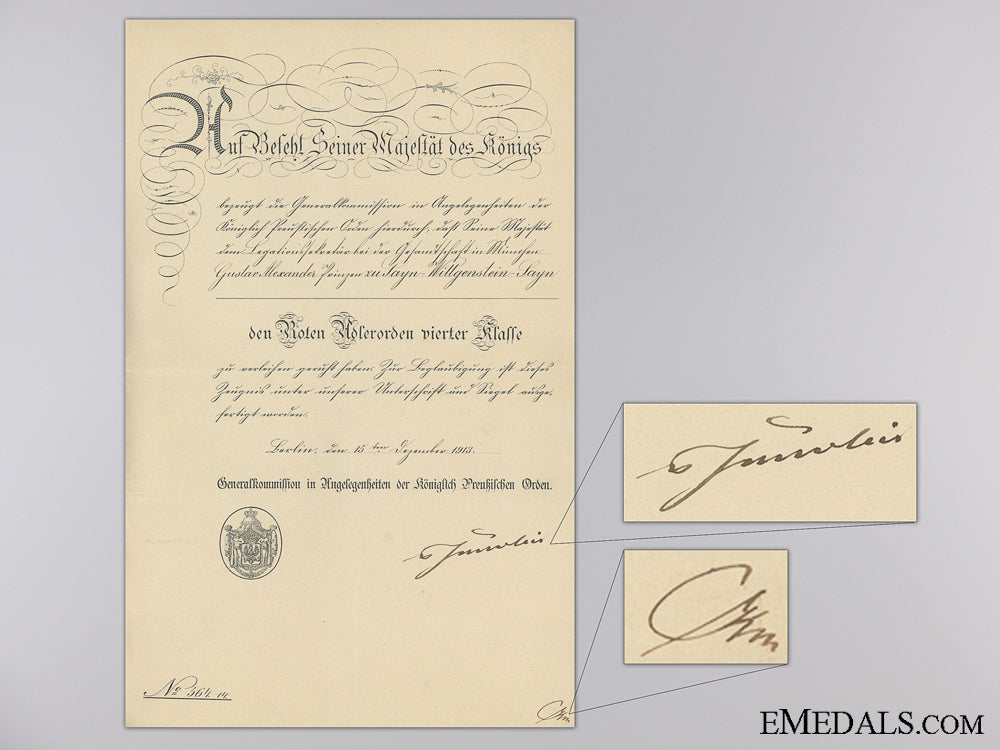 Auf Befehl Seiner Majestät des Königs
bezeugt die Generalkommission in Angelegenheiten der
Königlich Preußischen Orden hierdurch, daß Seine Majestät
dem Legationssekretär bei der Gesandtschaft in München
Gustav Alexander Prinzen zu Sayn-Wittgenstein-Sayn
den Roten Adlerorden vierter Klasse
zu verleihen geruht haben. Zur Beglaubigung ist dieses
Zeugnis unter unserer Unterschrift und Siegel ausge-
fertigt worden.
Berlin, den 15ten Dezember 1913.
Generalkommission in Angelegenheiten der Königlich Preußischen Orden.
No 564
EMEDALS.COM